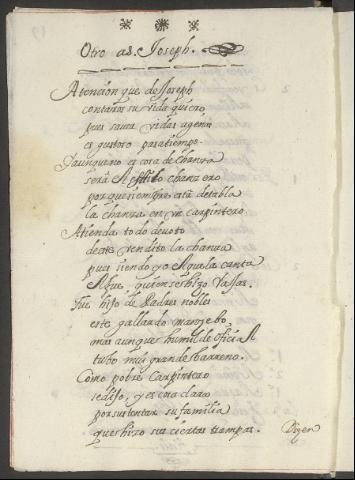 Otro a S. Joseph.
Atencion que de Joseph
contaros su vida quiero
pues saver vidas agenas
es gustoso pasatiempo.
Y aunque no es cosa de chanza
sera el estilo chanzero
porque siempre esta de tabla
la chanza en un carpintero.
Atienda todo devoto
de este la chanza
pues siendo yo el que la canta
Fue hijo de Padres nobles
este gallardo manzebo
mas aunque humilde oficial
tubo muy grande barreno.
Como pobre Carpintero
se dijo, y es cosa clara
por sustentar su familia
que hizo sus ciertas trampas.
Dizen